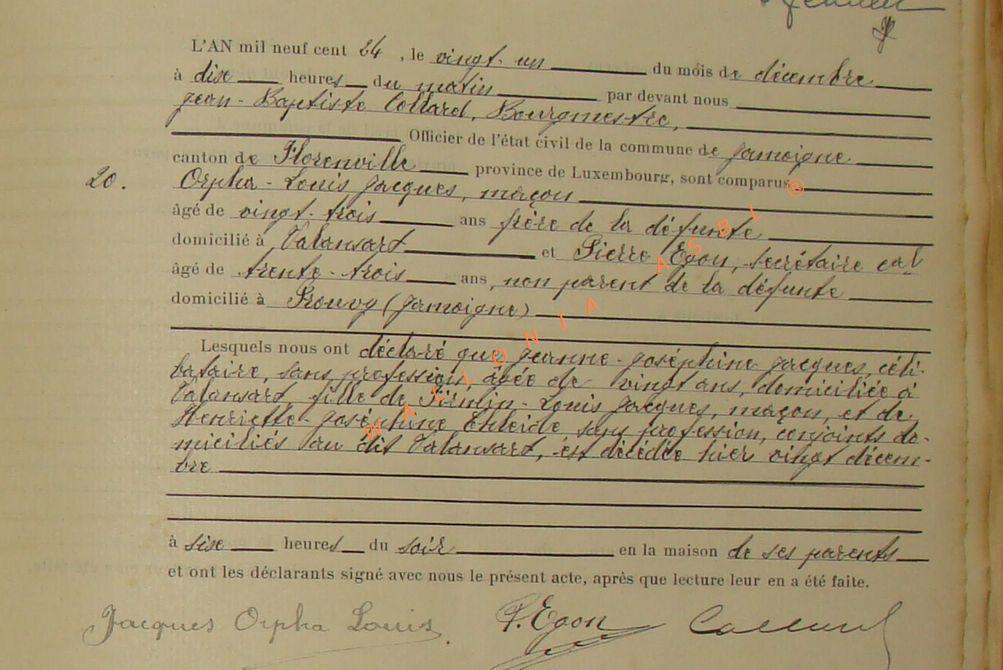 L'AN mil neuf cent 24, le vingt-un du mois de décembre
à dise heures du matin par devant nous
Jean-Baptiste Collard, Bourgmestre,
Officier de l'état civil de la commune de Jamoigne
canton de Florenville province de Luxembourg, sont comparus
20. Orpha-Louis Jacques, maçon
âgé de vingt-trois ans frère de la défunte
domicilié à Valansart et Pierre Egon, secrétaire cal
âgé de trente-trois ans, non parent de la défunte
domicilié à Prouvy (Jamoigne)
Lesquels nous ont déclaré que Jeanne-Joséphine Jacques, céli-
bataire, sans profession, âgée de vingt ans, domiciliée à
Valansart, fille de Firmin-Louis Jacques, maçon, et de
Henriette-Joséphine sans profession, conjoints do-
miciliés au dit Valansart, est décédée hier vingt décem-
bre
à sise heures du soir en la maison de ses parents
et ont les déclarants signé avec nous le présent acte, après que lecture leur en a été faite.
Jacques Orpha Louis P. Egon Collard